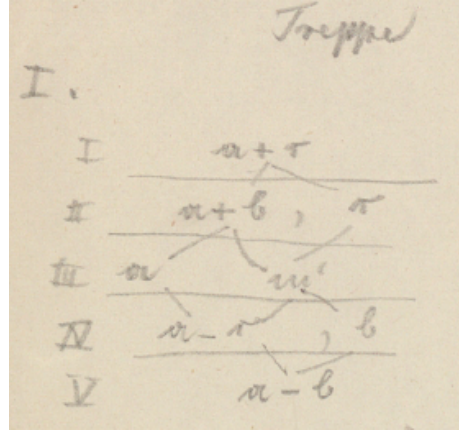 Treppe
I.
I a + r
II a + b , r
III a m'
IV a - r , b
V a - b